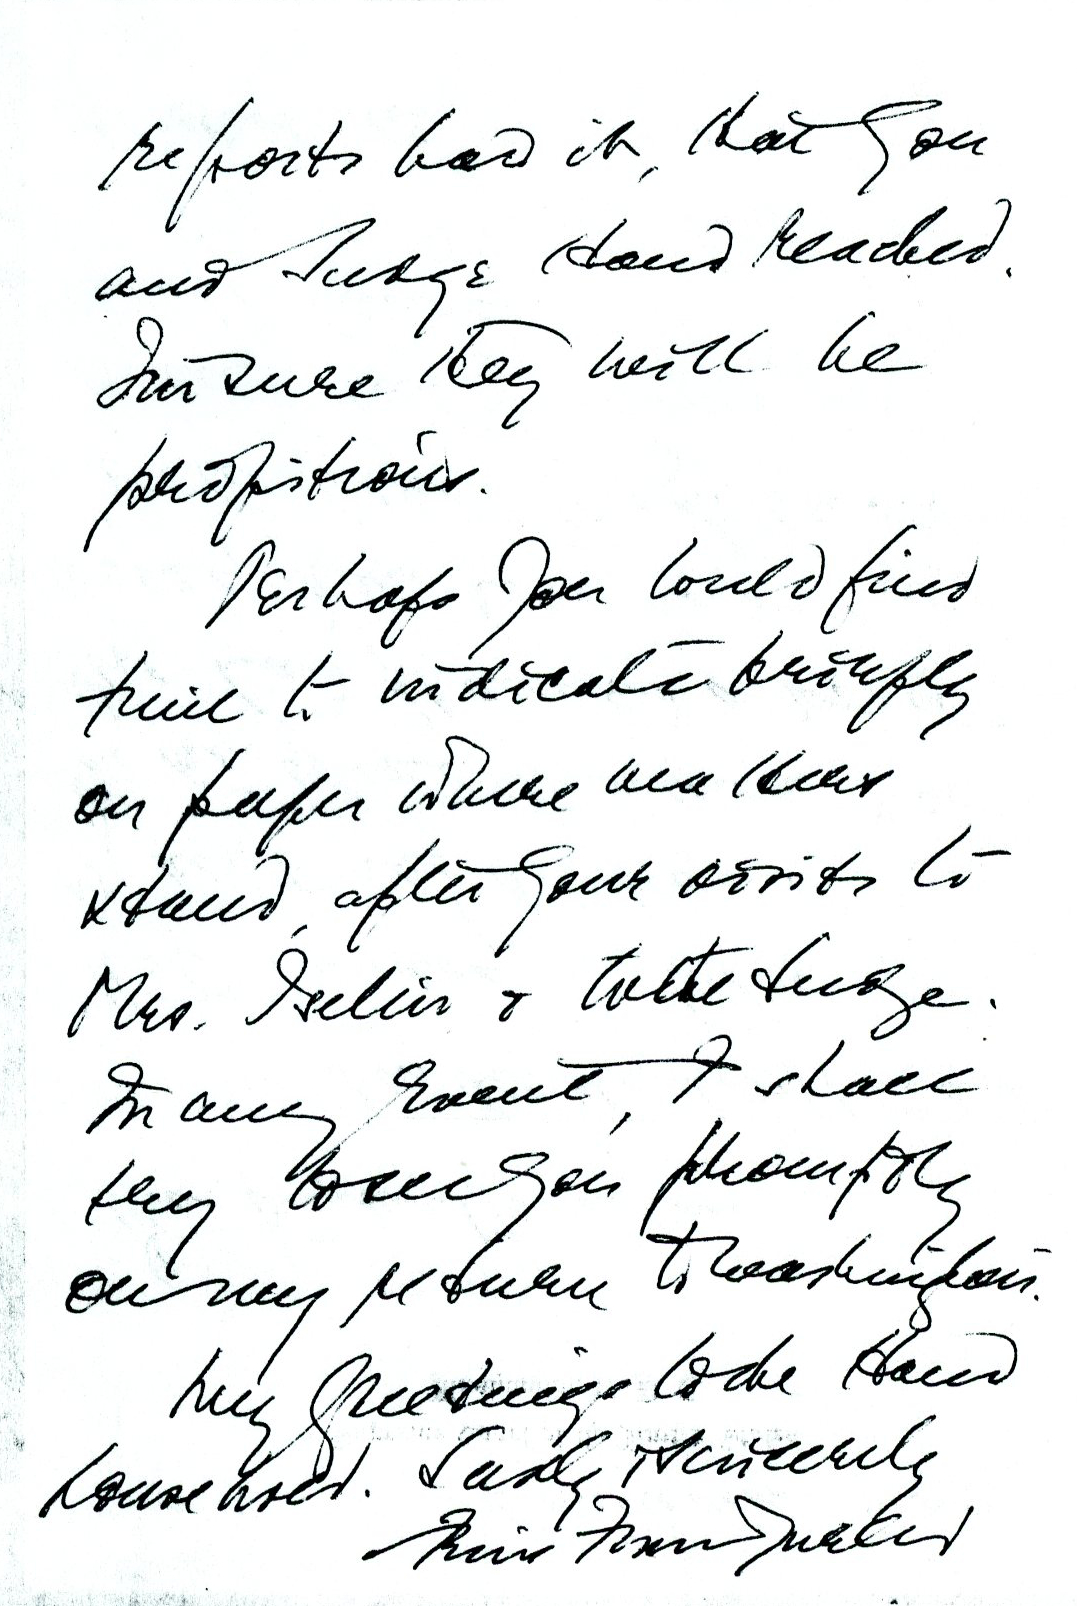 reports had it, that you
and Judge Hand reached.
I'm sure they will be
propitious.
Perhaps you could find
time to indicate briefly
on paper where matters
stand, after your visits to
Mrs. Iselin & to the Judge.
In any event, I shall
try to see you promptly
on my return to Washington.
My greetings to the Hand
household.
Sincerely
Felix Frankfurter